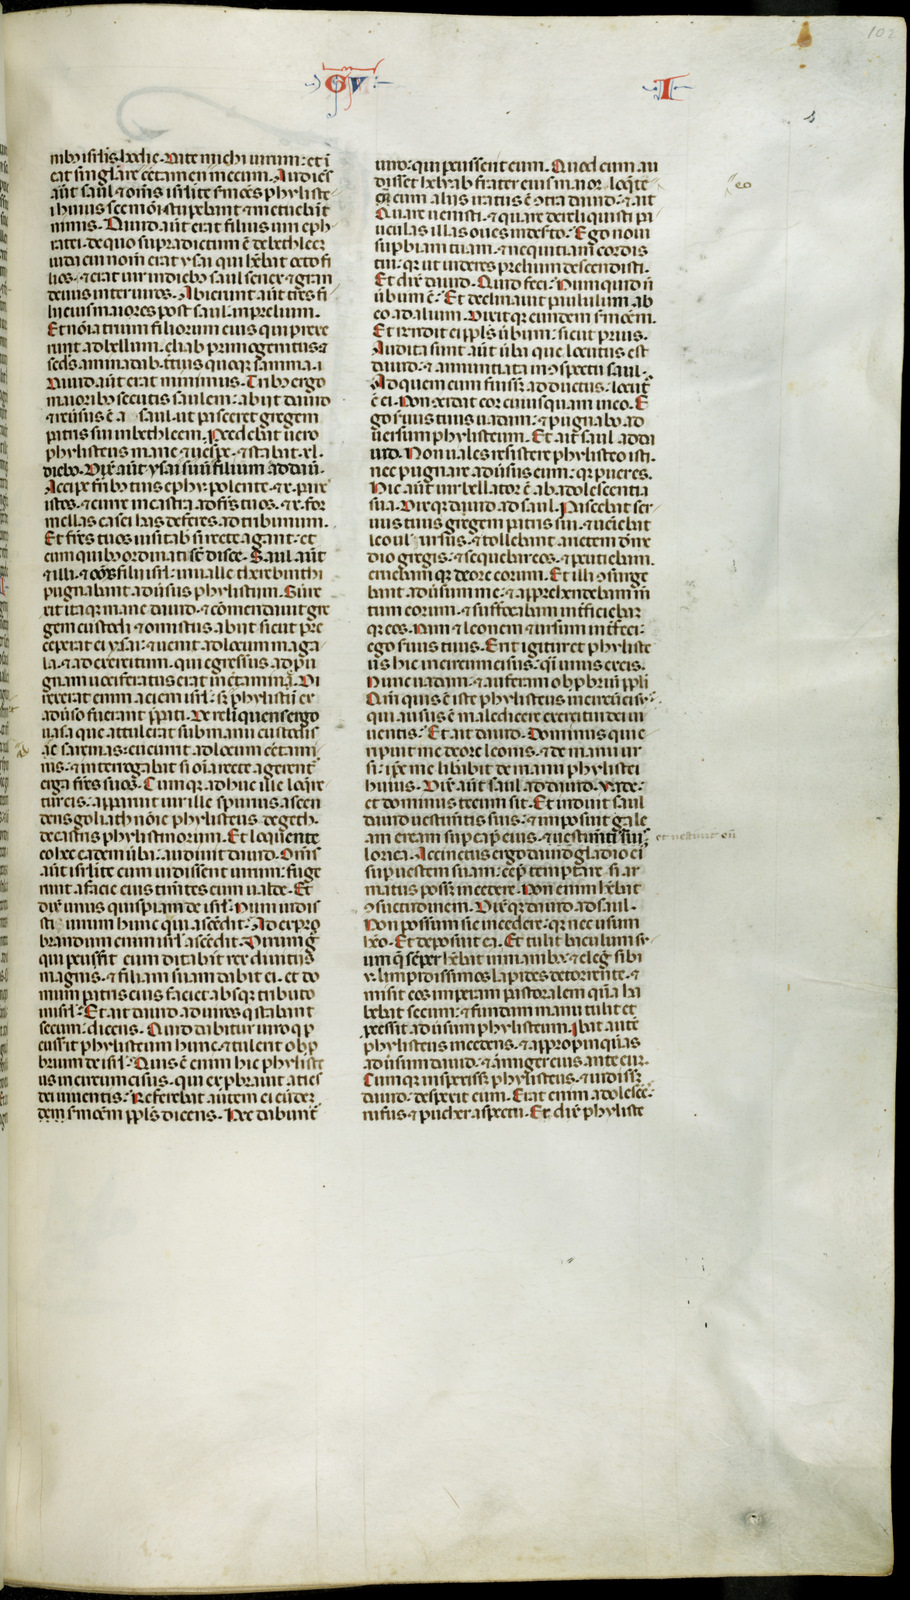 102
GV I
nibꝫ isrl̄is hodie. Date michi uirum: et ī
eat singlare c̄tamen mecum. Audiēs
aūt saul ⁊ om̄s isrl̄ite s̄mōēs phyliste
i huius sc̄emōi stupebant ⁊ metuebāt
nimis. Dauid aūt erat filius uiri eph
ratei. de quo supra dictum ē de bethleem
iuda cui nom̄ erat ysai qui h̄bat octo fi
lios. ⁊ erat uir in diebꝫ saul senex ⁊ gran
deuus inter uiros. Abierunt aūt tres fi
lii eius maiores post saul. in prelium.
Et nōīa trium filiorum eius qui perre
xerunt ad bellum. eliab primogenitus ⁊
sc̄ds aminadab. t̄tius quoqꝫ samma.
Dauid aūt erat minimus. Tribꝫ ergo
maioribꝫ secutis saulem: abijt dauid
⁊ reūsus ē a saul. ut pasceret gregem
patris sui in bethleem. Procedebat uero
phylisteus mane ⁊ uesp̄e. ⁊ stabat. xl.
diebꝫ. Dix̄ aūt ysai suū filium ad dauid.
Accipe fr̄ibꝫ tuis ephy. polente. ⁊ .x. pane
istos. ⁊ curre in castra ad fr̄es tuos. ⁊ .x. for
mellas casei has deferes. ad tribunum.
Et fr̄es tuos uisitab̄ si recte agant. et
cum quibꝫ ordinati sūt disce. Saul aūt
⁊ illi. ⁊ om̄s filii isrl̄. in ualle therebinthi
pugnabant adūsus phylistiim. Surre
xit itaqꝫ mane dauid. ⁊ cōmendauit gre
gem custodi ⁊ onustus abijt sicut pre
ceperat ei ysai: ⁊ uenit ad locum maga
la. ⁊ ad exercitum. qui egressus ad pu
gnam uociferatus erat in c̄tamine. Di
rexerat enim aciem isrl̄. sꝫ phylistii ex
aduso fuerant p̄parati. Derelinquens ergo
uasa que attulerat sub manu custodis
ad sarcinas: cucurrit ad locum c̄tami
nis. ⁊ interrogabat si oīa recte agerentᷣ
erga fr̄es suos. Cumqꝫ adhuc ille loq̄re
tur eis: apparuit uir ille spurius ascen
dens goliath nōīe phylisteus de geth.
de castris phylistinorum. Et loquente
eo hec eadem ūba: audiuit dauid. Om̄s
aūt isrl̄ite cum uidissent uirum: fuge
runt a facie eius tim̄tes eum ualde. Et
dix̄ unus quispiam de isrl̄. Num uidis
tis uirum hunc qui asc̄edit. Ad expro
brandum enim isrl̄ asc̄edit. Uirum g̊
qui pcusserit eum ditabit rex diuitiis
magnis. ⁊ filiam suam dabit ei. et do
mum patris eius faciet absqꝫ tributo
in isrl̄. Et ait dauid ad uiros q̇ stabant
secum: dicens. Quid dabitur uiro q̇ p
cusserit phylisteum hunc. ⁊ tulerit obp
brium de isrl̄. Quis ē enim hic phyliste
us incircumcisus. qui exp̄brauit acies
dei uiuentis. Referebat autem ei eūdem
s̄mōem pp̄ls dicens. Hec dabunt̄
uiro: qui pcusserit eum. Quod cum au
disset helyab frater eius maior. loq̄nte
eo
g̊ eum aliis iratus ē ꝯtra dauid: ⁊ ait
Quare uenisti. ⁊ quare dereliquisti pa
uculas illas oues in deserto. Ego noui
supbiam tuam. ⁊ nequitiam cordis
tui: qꝫ ut uideres prelium descendisti.
Et dix̄ dauid. Quid feci: Numquid ñ
ūbum ē. Et declinauit paululum ab
eo ad alium. Dixitqꝫ eundem s̄mōem.
Et rn̄dit ei pp̄ls ūbum: sicut prius.
Audita sunt aūt ūba que locutus est
dauid: ⁊ annuntiata in ꝯspectu saul.
Ad quem cum fuiss̄ adductus: locut̄
ē ei. Non ꝯcidat cor cuiusquam in eo. E
go s̄uus tuus uadam: ⁊ pugnabo ad
ūersum phylisteum. Et ait saul ad da
uid. Non uales resistere phylisteo isti.
nec pugnare adūsus eum: qꝫ puer es.
Hic aūt uir bellator ē ab adolescentia
sua. Dixitqꝫ dauid ad saul. Pascebat ser
uus tuus gregem patris sui. ⁊ ueniebat
leo uel ursus: ⁊ tollebant arietem de me
dio gregis. ⁊ sequebar eos. ⁊ pcutiebam.
eruebamqꝫ de ore eorum. Et illi ꝯsurge
bant adūsum me: ⁊ apprehendebam m̄
tum eorum. ⁊ suffocabam int̄ficiebar
qꝫ eos. Nam ⁊ leonem ⁊ ursum int̄feci
ego s̄uus tuus. Erit igitur et phyliste
us hic incircumcisus. q̄si unus ex eis.
Nunc uadam: ⁊ auferam obp̄brium pp̄li
Qm̄ quis ē iste phylisteus incircūcisꝰ.
qui ausus ē maledicere exercitui dei ui
uentis. Et ait dauid. Dominus qui e
ripuit me de ore leonis. ⁊ de manu ur
si: ip̄e me libabit de manu phylistei
huius. Dix̄ aūt saul ad dauid. Vade:
et dominus tecum sit. Et induit saul
dauid uestim̄tis suis: ⁊ imposuit gale
am eream sup cap̄ eius. ⁊ uestim̄ti sui:
et uestiuit eū
lorica. Accinctus ergo dauid gladio ei
sup uestem suam: cep̄ temptare si ar
matus poss̄ incedere. Non enim h̄ebat
ꝯsuetudinem. Dix̄qꝫ dauid ad saul.
Non possum sic incedere: qꝫ nec usum
h̄eo. Et deposuit ea. Et tulit baculum su
um q̄ semper h̄ebat in manibꝫ. ⁊ eleḡ sibi
v. limpidissimos lapides de torrente. ⁊
misit eos in peram pastoralem q̄m ha
bebat secum: ⁊ fundam manu tulit et
pcessit adūsum phylisteum. Ibat autē
phylisteus incedens. ⁊ appropinquās
adūsum dauid. ⁊ armiger eius ante eum.
Cumqꝫ inspexiss̄ phylisteus. ⁊ uidiss̄
dauid: despexit eum. Erat enim adolesce
ns rufus. ⁊ pulcher aspectu. Et dix̄ phyliste